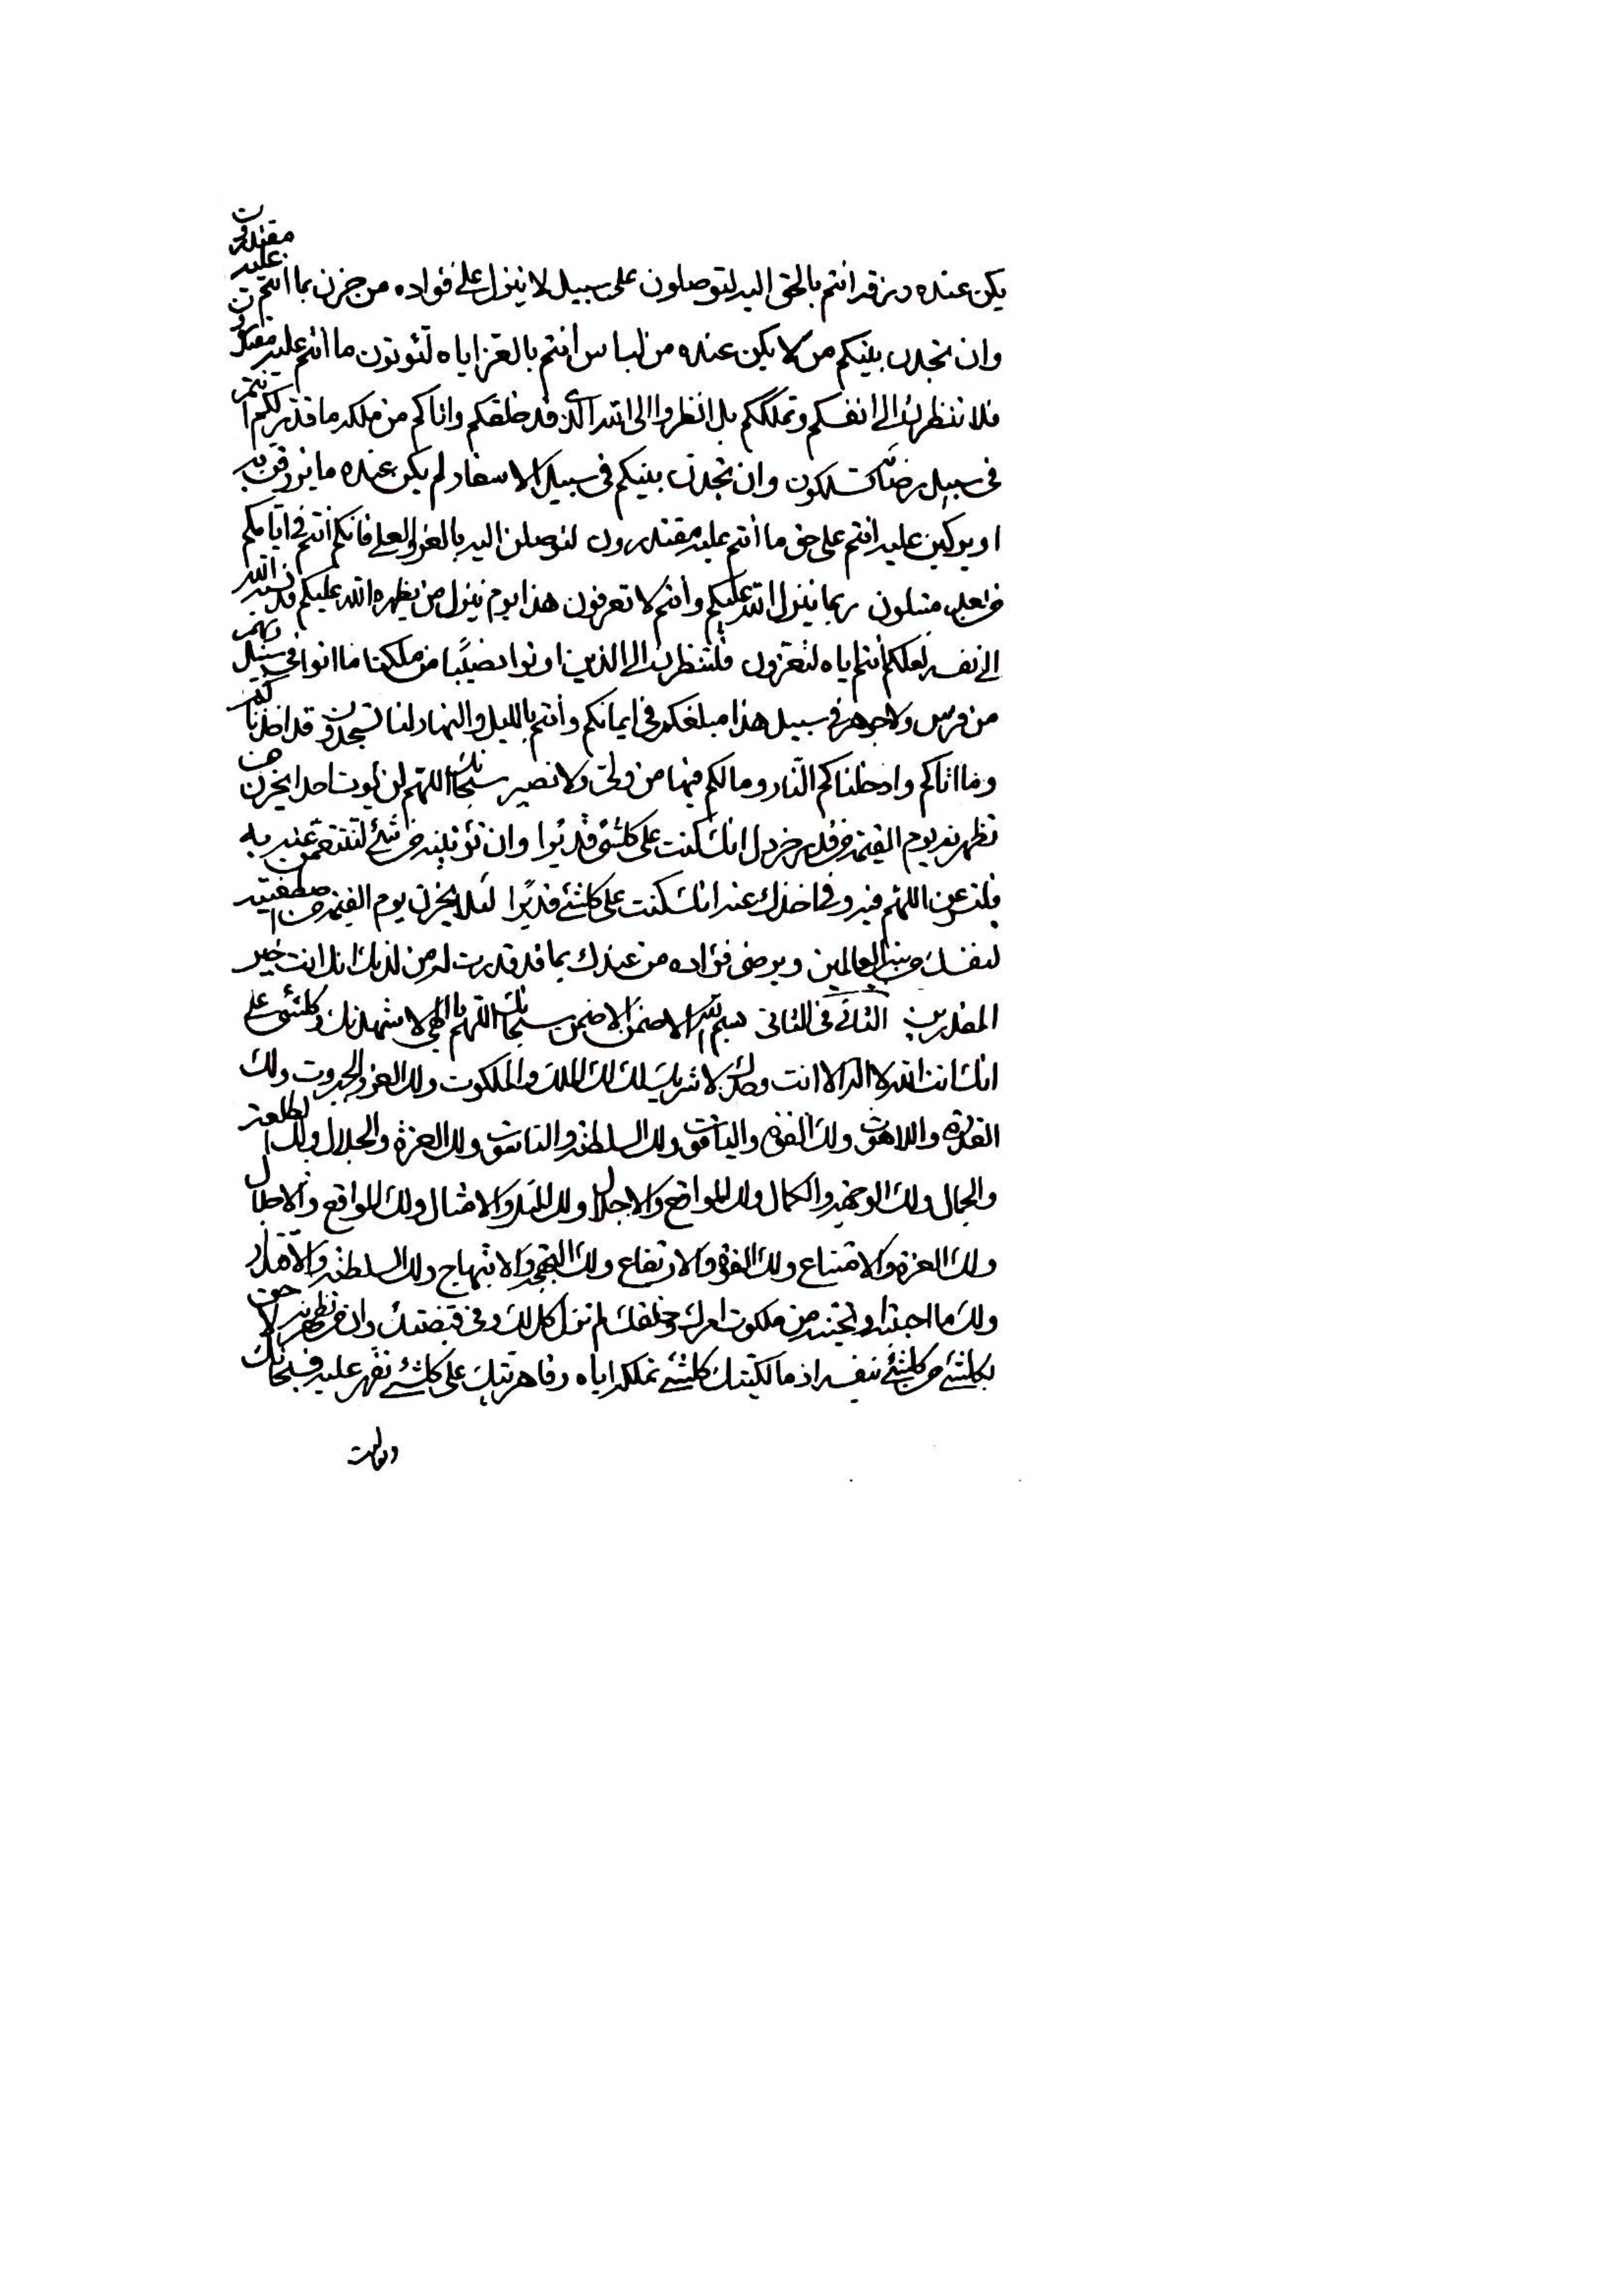 يكن عنده رزقه انتم بالحق اليه لتوصلون على سبيل لا ينزل على فواده من حزن بما انتم عليه مقتدرون
وان تجدن بينكم من لا يكن عنده من لباس انتم بالعز اياه لتؤتون ما انتم عليه مقتدرون
فلا تنظرن الى انفسكم وتملككم بل انظروا الى الله الذي قد خلقكم واتاكم من ملكه ما قدر لكم انتم
في سبيل رضائه تسلكون وان تجدن بينكم في سبيل الاسفار لم يكن عنده ما يرزقن به
او يركبن عليه انتم على حق ما انتم عليه مقتدرون لتوصلن اليه بالعز والعلى فانكم انتم في ايامكم
ربما ينزل الله عليكم وانتم لا تعرفون هذا يوم ينزل من يظهره الله عليكم قد نسبه الله
الى نفسه لعلكم انتم اياه لتعززون فلتنظرن الى الذين اوتوا نصيبا من ملكنا ما اتوا في سبيل ربهم
من فرس ولا جوهر في سبيل هذا مبلغكم في ايمانكم وانتم بالليل والنهار لنا تسجدون قد اخذناكم
وما اتاكم وادخلناكم النار وما لكم فيها من ولي ولا نصير سبحانك اللهم لن يموت احدا يحزن من
تظهرنه يوم القيمة قدر خردل انك كنت على كلشئ قديرا وان تؤتينه من شئ لتنتقمن عنه به
اللهم فيه وفى اخذك عنه انك كنت على كلشئ قديرا لئلا يحزن يوم القيمة من اصطفيته
لنفسك من بين العالمين ويرضى فؤاده من عندك بما قد قدرت له من لدنك انك انت خير
المقدرين الثاني في الثاني بسم الله الاضمن الاضمن سبحانك اللهم يا الهي لاشهدنك وكلشئ على
انك انت الله لا اله الا انت وحدك لا شريك لك لك الملك والملكوت ولك العز والجبروت ولك
القدرة واللاهوت ولك القوة والياقوت ولك السلطنة والناسوت ولك العزة والجلال ولك الطلعة
والجمال ولك الوجهة والكمال ولك المواقع والاجلال ولك المثل والامثال ولك المواقع والاجلال
ولك العزة والامتناع ولك القوة والارتفاع ولك البهجة والابتهاج ولك السلطنة والاقتدار
ولك ما احببته او تحبنه من ملكوت امرك وخلقك لم تزل كل لك وفى قبضتك وان من تظهرنه لاحق
بكلشئ من كلشئ بنفسه اذ مالكيتك كلشئ تملكه اياه وقاهريتك على كلشئ تقهر عليه فسبحانك